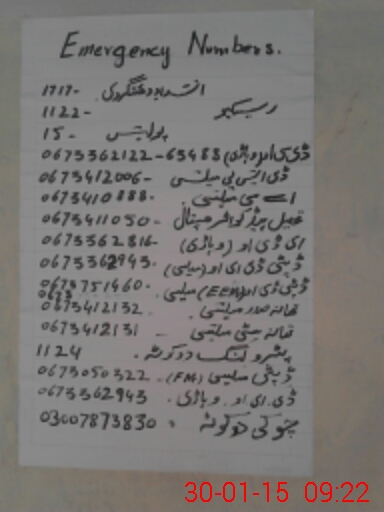 Emergency Numbers.
انسداد دہشتگردی 1717-
ریسکیو 1122-
پولیس 15-
ڈی سی او (وہاڑی) 0673362122-63488
ڈی ایس پی میلسی 0673412006-
اے سی میلسی 0673410888-
تحصیل ہیڈ کوارٹر ہسپتال 0673411050-
ای ڈی او (وہاڑی) 0673362816-
ڈپٹی ڈی ای او (میلسی) 0673362943-
ڈپٹی ڈی او (EEM) میلسی 0673751460-
تھانہ صدر میلسی 0673412132
تھانہ سٹی میلسی 0673412131
پٹرولنگ دوکوٹہ 1124
ڈپٹی میلسی (FM) 0673050322
ڈی ای او وہاڑی 0673362943
چوکی دوکوٹہ 03007873830
30-01-15 09:22